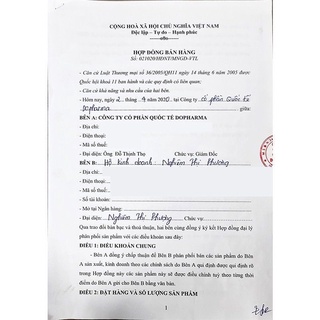 CỘNG HOÀ XÃ HỘI CHỦ NGHĨA VIỆT NAM
Độc lập – Tự do – Hạnh phúc
---o0o---
HỢP ĐỒNG BÁN HÀNG
Số: 021020/HĐKT/MNGD-VTL
- Căn cứ Luật Thương mại số 36/2005/QH11 ngày 14 tháng 6 năm 2005 được
Quốc hội khoá 11 ban hành và các quy định có liên quan;
- Căn cứ khả năng và nhu cầu của hai bên.
- Hôm nay, ngày 2 tháng 9 năm 2020, tại Công ty cổ phần Quốc tế
Dopharma giữa:
BÊN A: CÔNG TY CỔ PHẦN QUỐC TẾ DOPHARMA
- Địa chỉ:
- Điện thoại:
- Mã số thuế:
- Đại diện: Ông Đỗ Thịnh Thụ Chức vụ: Giám Đốc
BÊN B: Hộ kinh doanh: Nghiêm Thị Phương
- Địa chỉ:
- Điện thoại:
- Mã số thuế:
- Số tài khoản:
- Mở tại Ngân hàng:
- Đại diện: Nghiêm Thị Phương Chức vụ:
Qua trao đổi bàn bạc và thoả thuận, hai bên cùng đồng ý ký kết Hợp đồng đại lý
phân phối sản phẩm với các điều khoản sau đây:
ĐIỀU 1: ĐIỀU KHOẢN CHUNG
- Bên A đồng ý chấp thuận để Bên B phân phối bán các sản phẩm do Bên
A sản xuất, kinh doanh theo các chính sách do Bên A quy định được qui định rõ
trong Hợp đồng này các sản phẩm này sẽ được điều chỉnh tuỳ theo từng thời
điểm do Bên A gửi cho Bên B bằng văn bản.
ĐIỀU 2: ĐẶT HÀNG VÀ SỐ LƯỢNG SẢN PHẨM
1